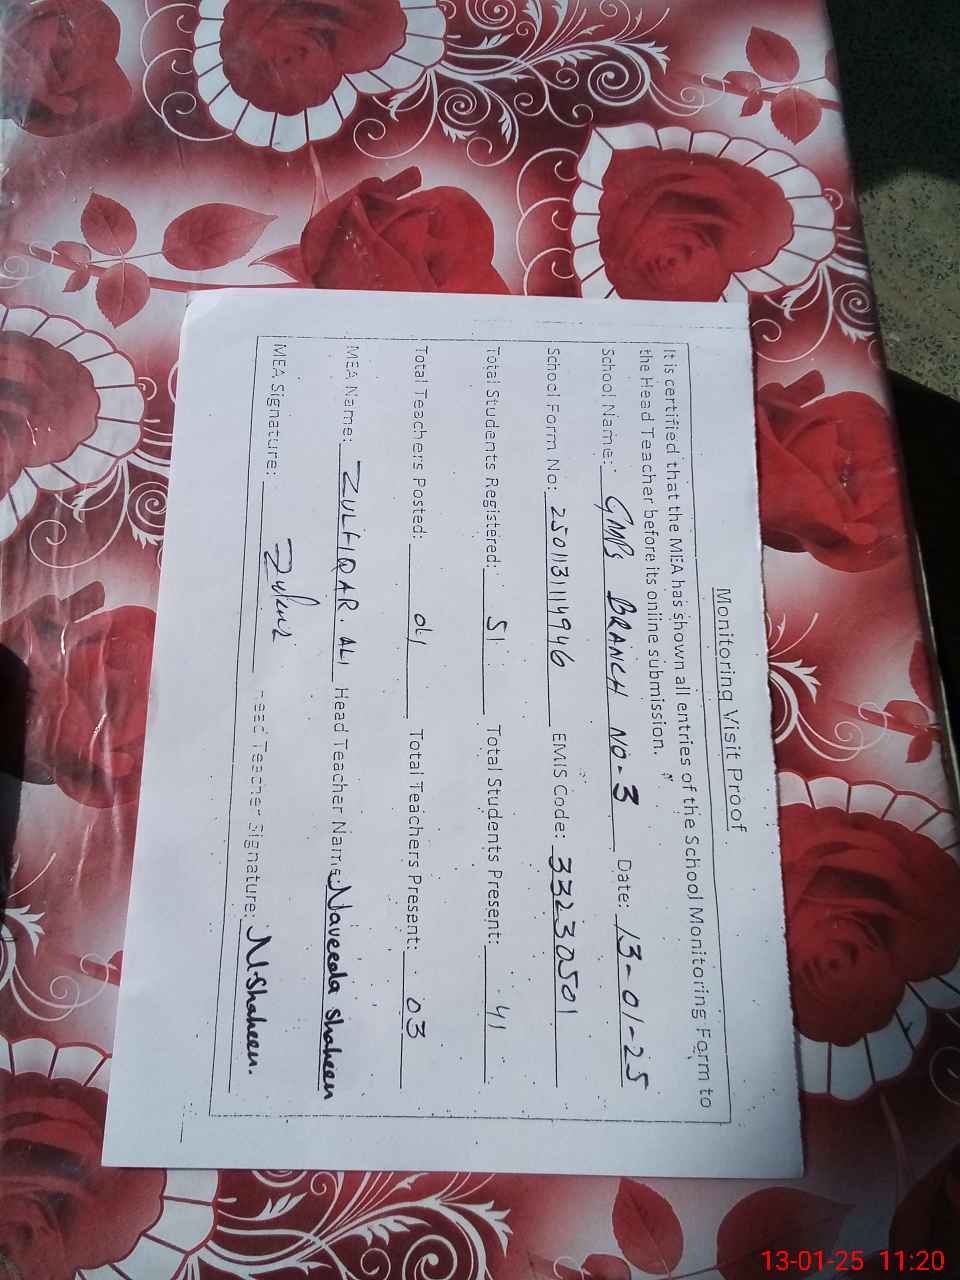 Monitoring Visit Proof
It is certified that the MEA has shown all entries of the School Monitoring Form to
the Head Teacher before its online submission.
School Name: GMPS BRANCH NO-3 Date: 13-01-25
School Form No: 2501131114946 EMIS Code: 33230501
Total Students Registered: 51 Total Students Present: 41
Total Teachers Posted: 04 Total Teachers Present: 03
MEA Name: ZULFIQAR. ALI Head Teacher Name: Naveeda shaheen
MEA Signature: Head Teacher Signature: N.Shaheen.
13-01-25 11:20